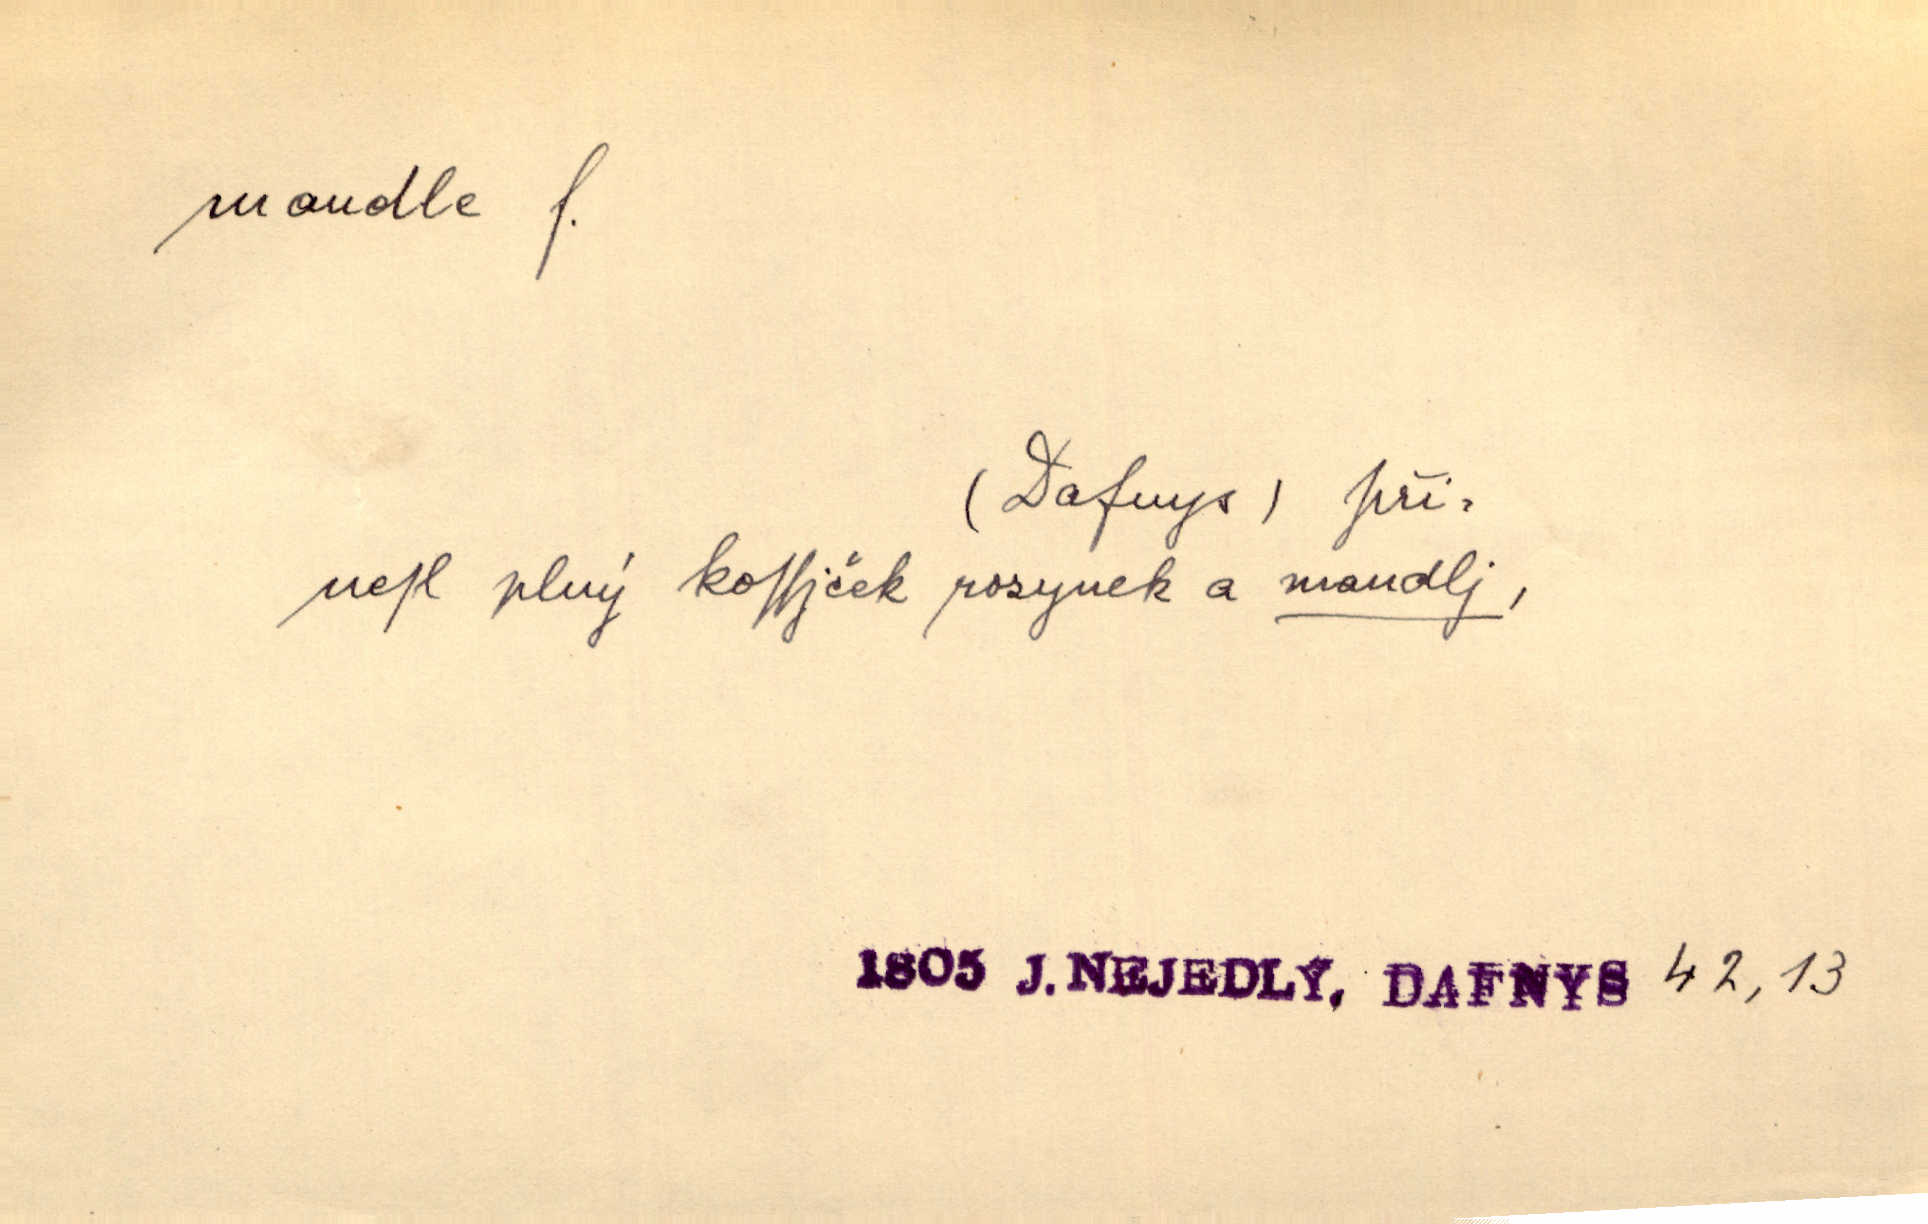 mandle f.
(Dafnys) při-
nesl plný koſſjček rozynek a mandlj,
1805 J. NEJEDLÝ, DAFNYS 42, 13